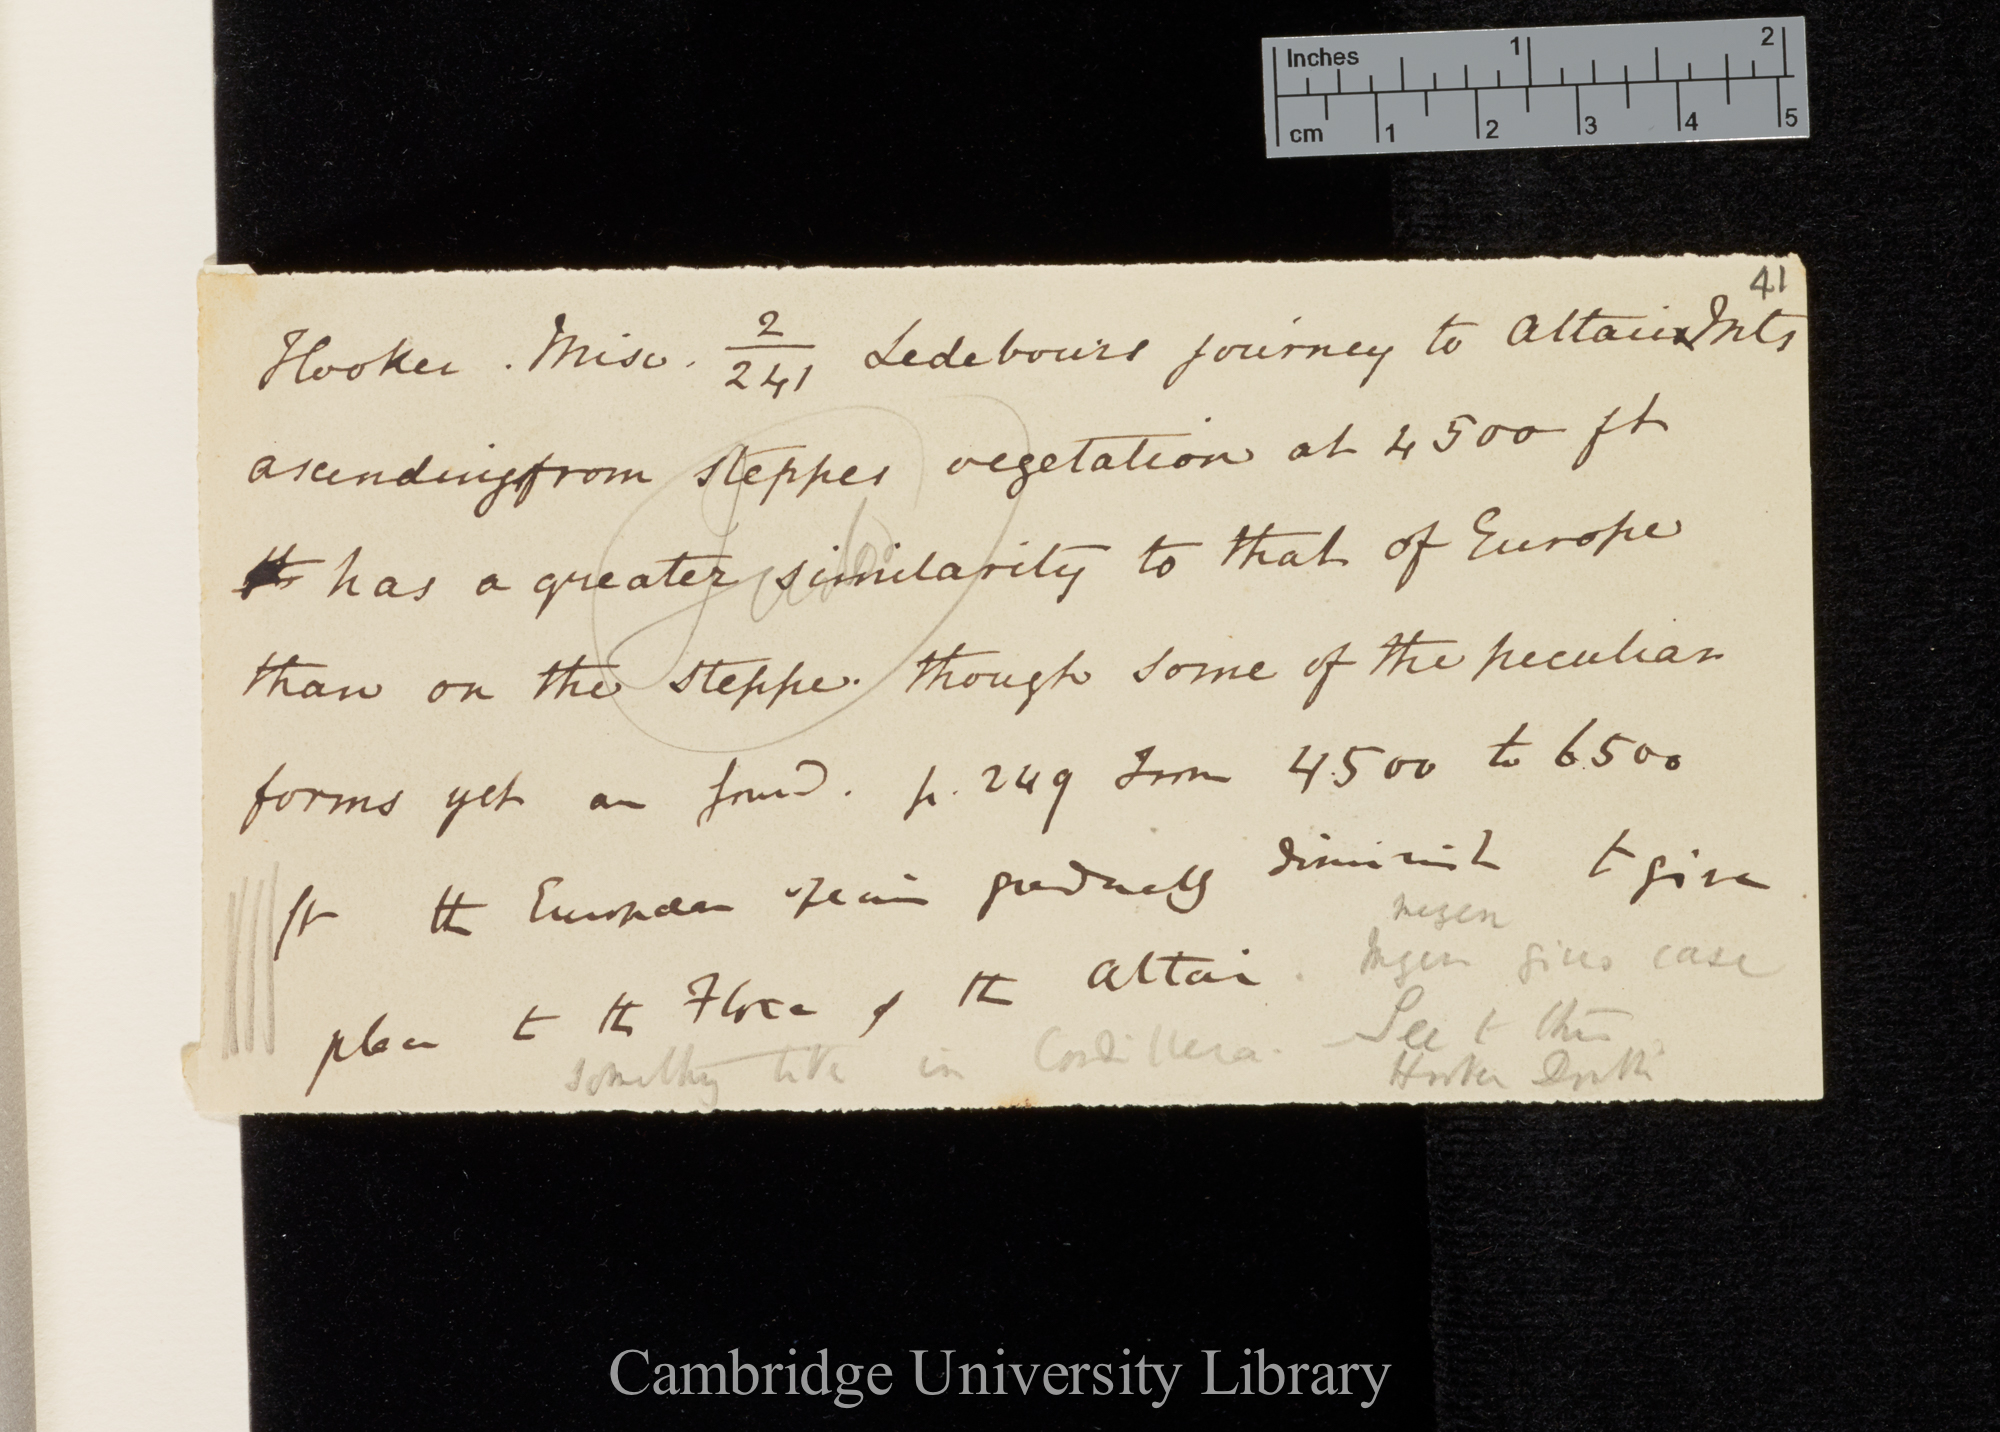 Inches 1 2
cm 1 2 3 4 5
41
Hooker. Misc. 2/241 Ledebours journey to Altain Mts
ascending from steppes vegetation at 4500 ft
has a greater similarity to that of Europe
than on the steppe. though some of the peculiar
forms yet are found. p. 249 From 4500 to 6500
ft the European species gradually diminish to give
place to the Flora of the Altai.
Meyen
Meyen gives case
See to this
something like in Cordillera.
Hooker
Cambridge University Library